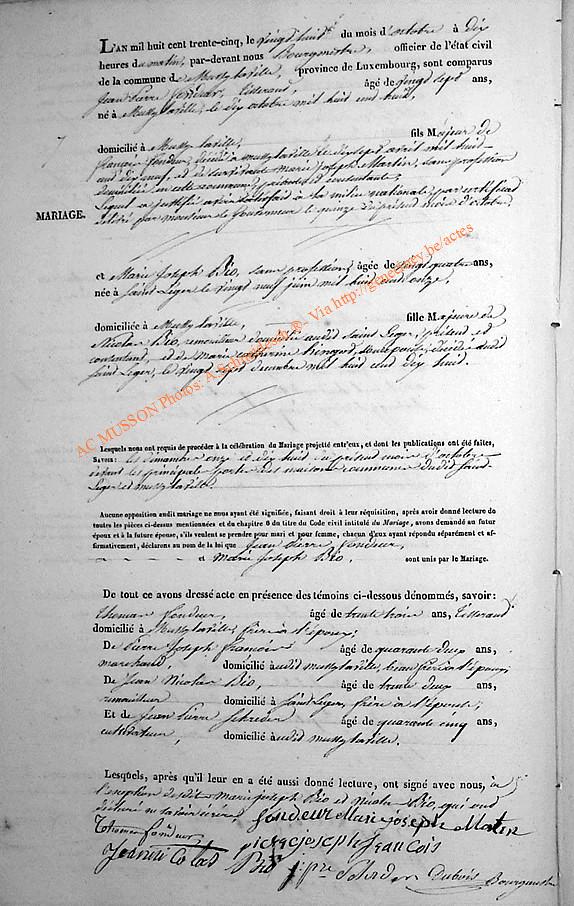 L'AN mil huit cent trente-cinq, le vingt huit du mois d'octobre à dix
heures du matin, par-devant nous Bourgmestre, officier de l'état civil
de la commune de Mussy la ville, province de Luxembourg, sont comparus
Jean Pierre Fondeur, tisserand, âgé de vingt sept ans,
né à Mussy la ville, le dix octobre mil huit cent huit,
domicilié à Mussy la ville, fils Majeur de
françois fondeur, décédé à mussy la ville le dix sept avril mil huit
cent dix neuf, et de Marie Joseph Martin, sans profession
domiciliée en cette commune, présente et consentante;
Lequel a justifié avoir satisfait à la milice nationale, par certificat
délivré par monsieur le Gouverneur le quinze du présent mois d'octobre.
MARIAGE.
et Marie Joseph Bio, sans profession, âgée de vingt quatre ans,
née à Saint Léger le vingt neuf juin mil huit cent onze,
domiciliée à Mussy la ville, fille Majeure de
Nicolas Bio, domicilié audit Saint Leger, présent et
consentant, et de Marie Catherine, décédée audit
Saint Leger, le vingt sept décembre mil huit cent dix huit.
Lesquels nous ont requis de procéder à la célébration du Mariage projetté entr'eux, et dont les publications ont été faites,
SAVOIR: les dimanches onze et dix huit du présent mois d'octobre
devant les principales portes des maisons communes dudit Saint
Leger et mussy la ville.
Aucune opposition audit mariage ne nous ayant été signifiée, faisant droit à leur réquisition, après avoir donné lecture de
toutes les pièces ci-dessus mentionnées et du chapitre 6 du titre du Code civil intitulé du Mariage, avons demandé au futur
époux et à la future épouse, s'ils veulent se prendre pour mari et pour femme, chacun d'eux ayant répondu séparément et af-
firmativement, déclarons au nom de la loi que Jean Pierre Fondeur,
et Marie Joseph Bio, sont unis par le Mariage.
De tout ce avons dressé acte en présence des témoins ci-dessous dénommés, savoir:
Thomas Fondeur, âgé de trente trois ans, Tisserand
domicilié à Mussy la ville, frère à l'époux;
De Pierre Joseph François âgé de quarante deux ans,
marchand, domicilié audit mussy la ville, beau frère à l'époux,
De Jean Nicolas Bio, âgé de trente deux ans,
domicilié à Saint Leger, frère à l'épouse,
Et de Jean Pierre Schreder âgé de quarante cinq ans,
cultivateur, domicilié audit mussy la ville.
Lesquels, après qu'il leur en a été aussi donné lecture, ont signé avec nous, à
l'exception desdits Marie Joseph Bio et Nicolas Bio, qui ont
déclaré ne savoir écrire
fondeur Marie joseph Martin
Thomas fondeur
pierre joseph francois
Jean ni Colas Bio jpre Schreder Dubois Bourgmestre
AC MUSSON Photos: A.Schroeder ® - Via http://geneseney.be/actes